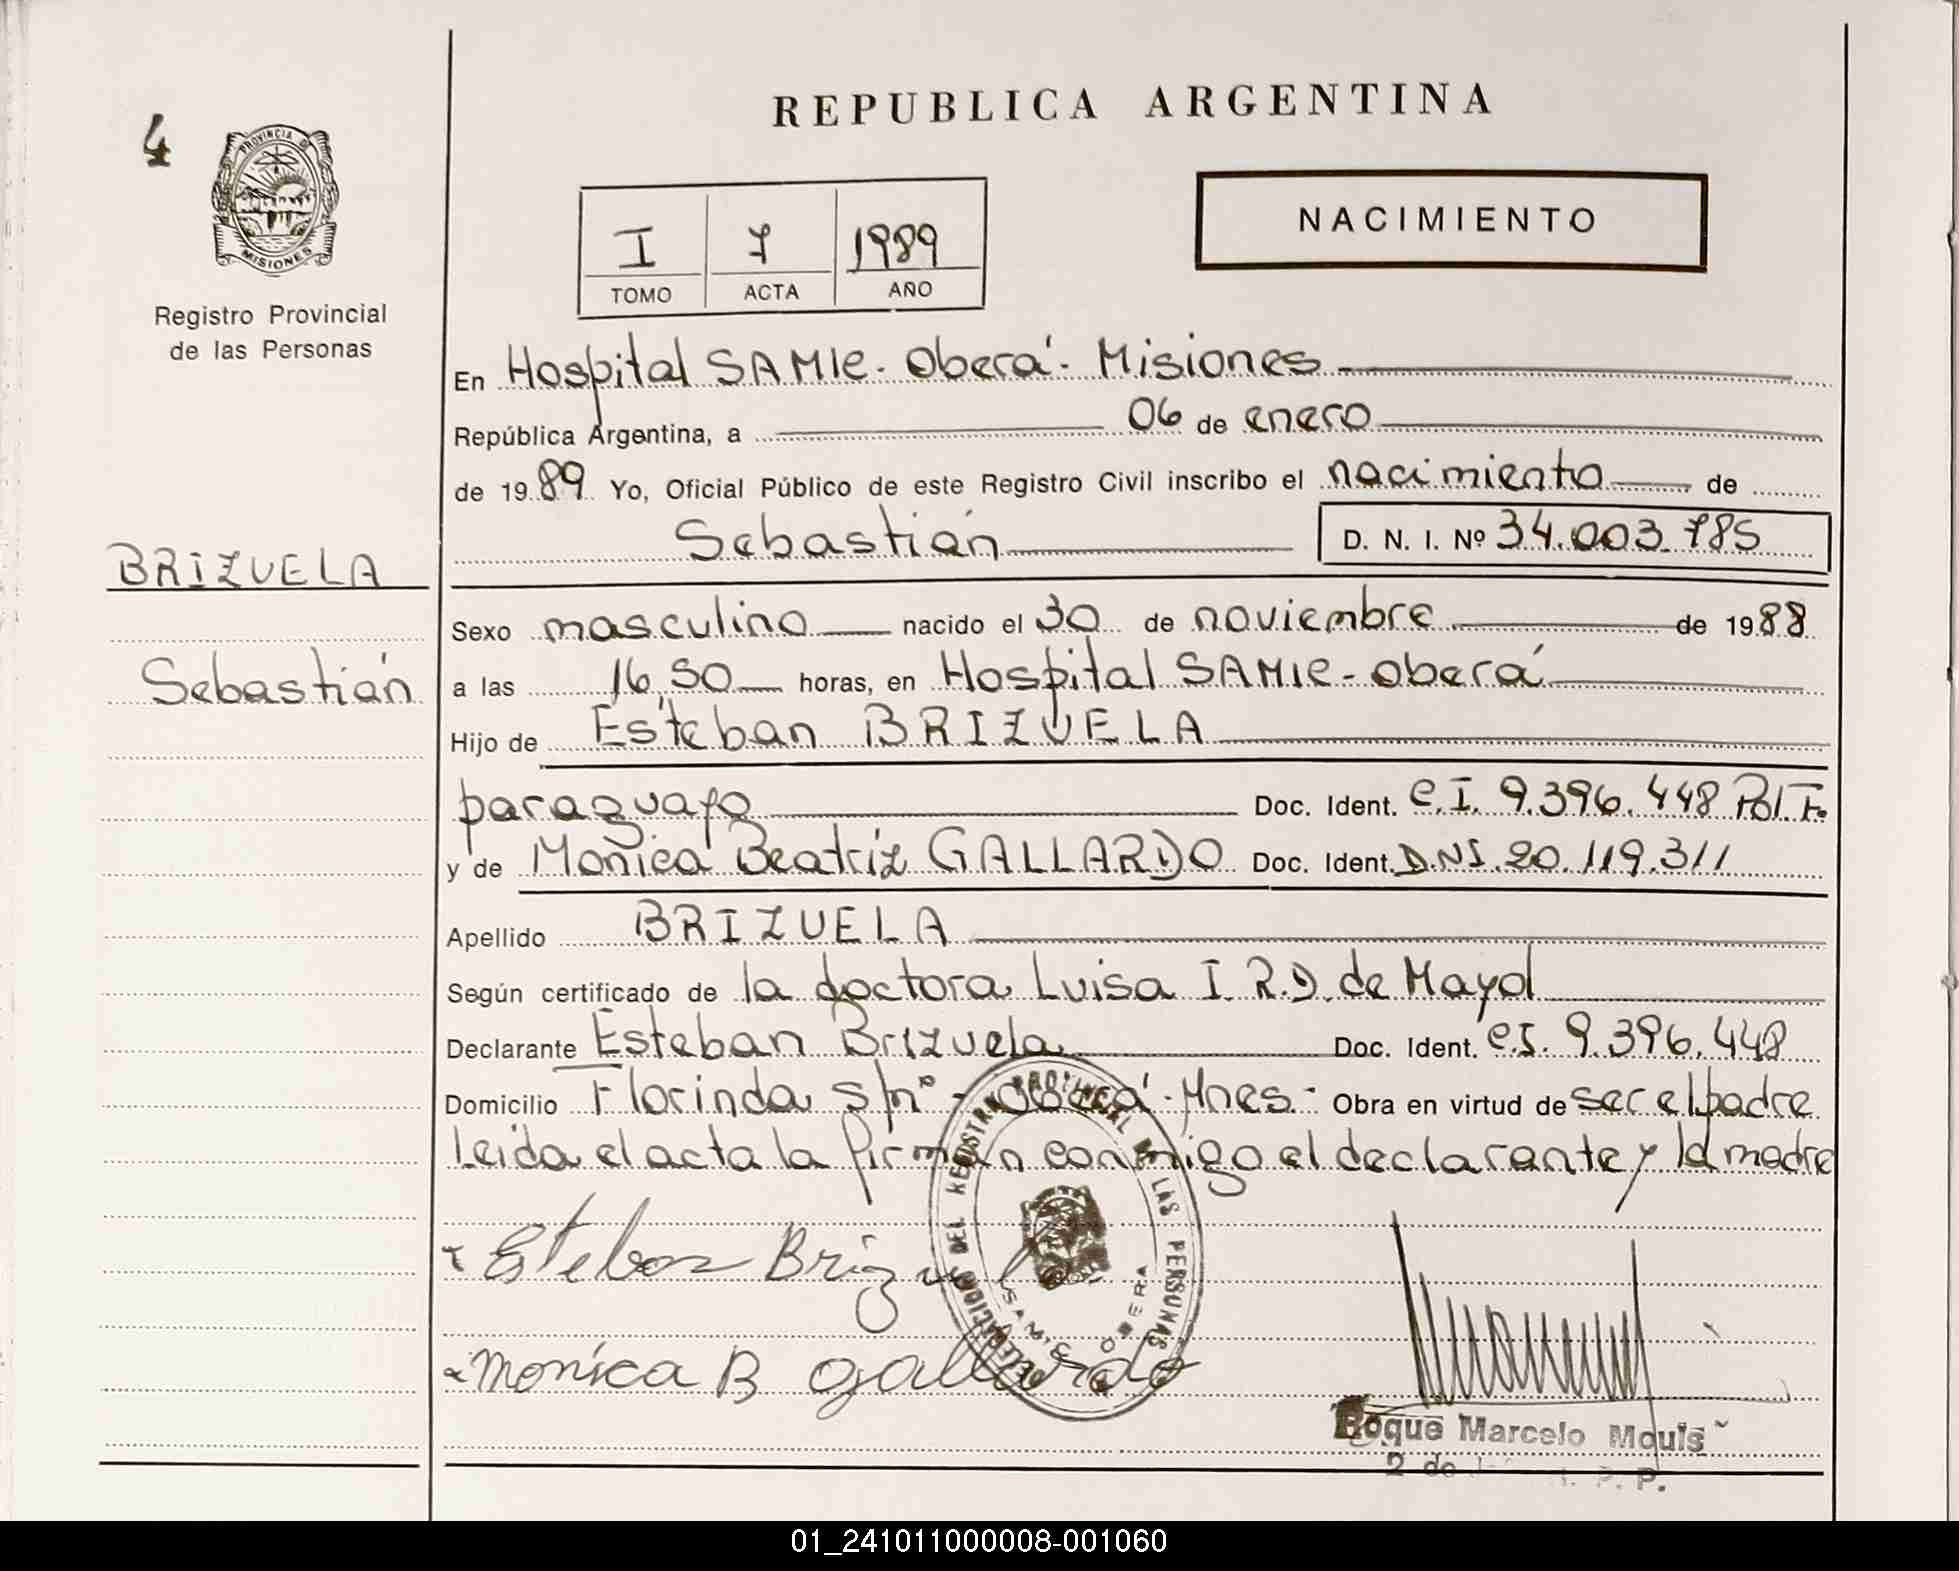 4
PROVINCIA DE
MISIONES
Registro Provincial
de las Personas
BRIZUELA
Sebastián
REPUBLICA ARGENTINA
NACIMIENTO
I 7 1989
TOMO ACTA AÑO
En Hospital SAMIC - Oberá - Misiones
República Argentina, a 06 de enero
de 1989 Yo, Oficial Público de este Registro Civil inscribo el nacimiento de
Sebastián D. N. I. Nº 34.003.785
Sexo masculino nacido el 30 de noviembre de 1988
a las 16,50 horas, en Hospital SAMIC - Oberá
Hijo de Esteban BRIZUELA
paraguayo Doc. Ident. C.I. 9.396.448 Pol. F.
y de Mónica Beatriz GALLARDO Doc. Ident. D.N.I. 20.119.311
Apellido BRIZUELA
Según certificado de la doctora Luisa I. R.D. de Mayol
Declarante Esteban Brizuela Doc. Ident. C.I. 9.396.448
Domicilio Florinda s/nº - Oberá - Mnes. Obra en virtud de ser el padre
Leida el acta la firman conmigo el declarante y la madre
Esteban Brizuela
Monica B gallardo
DELEGACION DEL REGISTRO PROVINCIAL DE LAS PERSONAS
SAMIC OBERA
Roque Marcelo
2 do P. P.
01_241011000008-001060